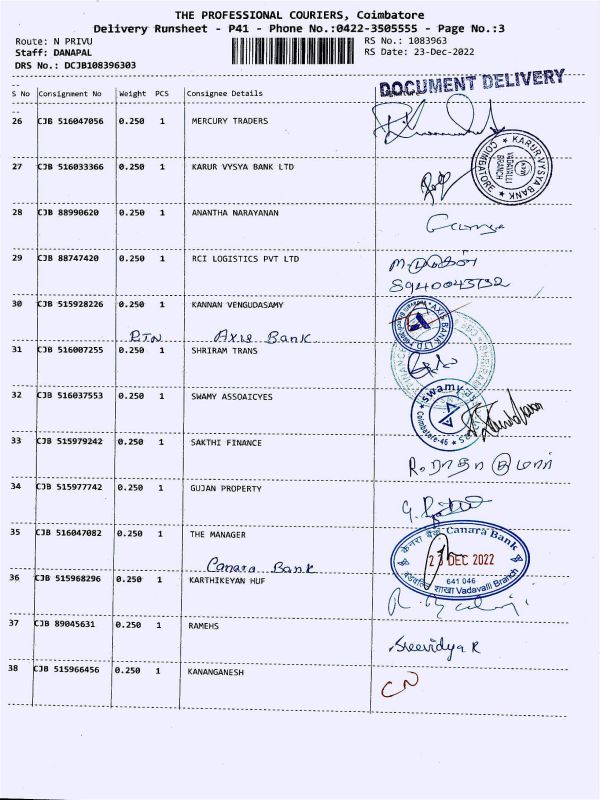 THE PROFESSIONAL COURIERS, Coimbatore
Delivery Runsheet - P41 - Phone No.:0422-3505555 - Page No.:3
Route: N PRIVU
RS No.: 1083963
Staff: DANAPAL
RS Date: 23-Dec-2022
DRS No.: DCJB108396303
DOCUMENT DELIVERY
S No Consignment No Weight PCS Consignee Details
26 CJB 516047056 0.250 1 MERCURY TRADERS
27 CJB 516033366 0.250 1 KARUR VYSYA BANK LTD
KARUR-VYSYA BANK
COIMBATORE
VADAVALLI
BRANCH
28 CJB 88990620 0.250 1 ANANTHA NARAYANAN
29 CJB 88747420 0.250 1 RCI LOGISTICS PVT LTD
30 CJB 515928226 0.250 1 KANNAN VENGUDASAMY
RTN Axis Bank
AXIS BANK LTD.
31 CJB 516007255 0.250 1 SHRIRAM TRANS
32 CJB 516037553 0.250 1 SWAMY ASSOAICYES
swamy
Coimbatore-46
33 CJB 515979242 0.250 1 SAKTHI FINANCE
R. ராதா கு மார்
34 CJB 515977742 0.250 1 GUJAN PROPERTY
35 CJB 516047082 0.250 1 THE MANAGER
Canara Bank
केनरा बैंक Canara Bank
23 DEC 2022
641 046
शाखा Vadavalli Branch
36 CJB 515968296 0.250 1 KARTHIKEYAN HUF
37 CJB 89045631 0.250 1 RAMEHS
Sreevidya R
38 CJB 515966456 0.250 1 KANANGANESH
CN